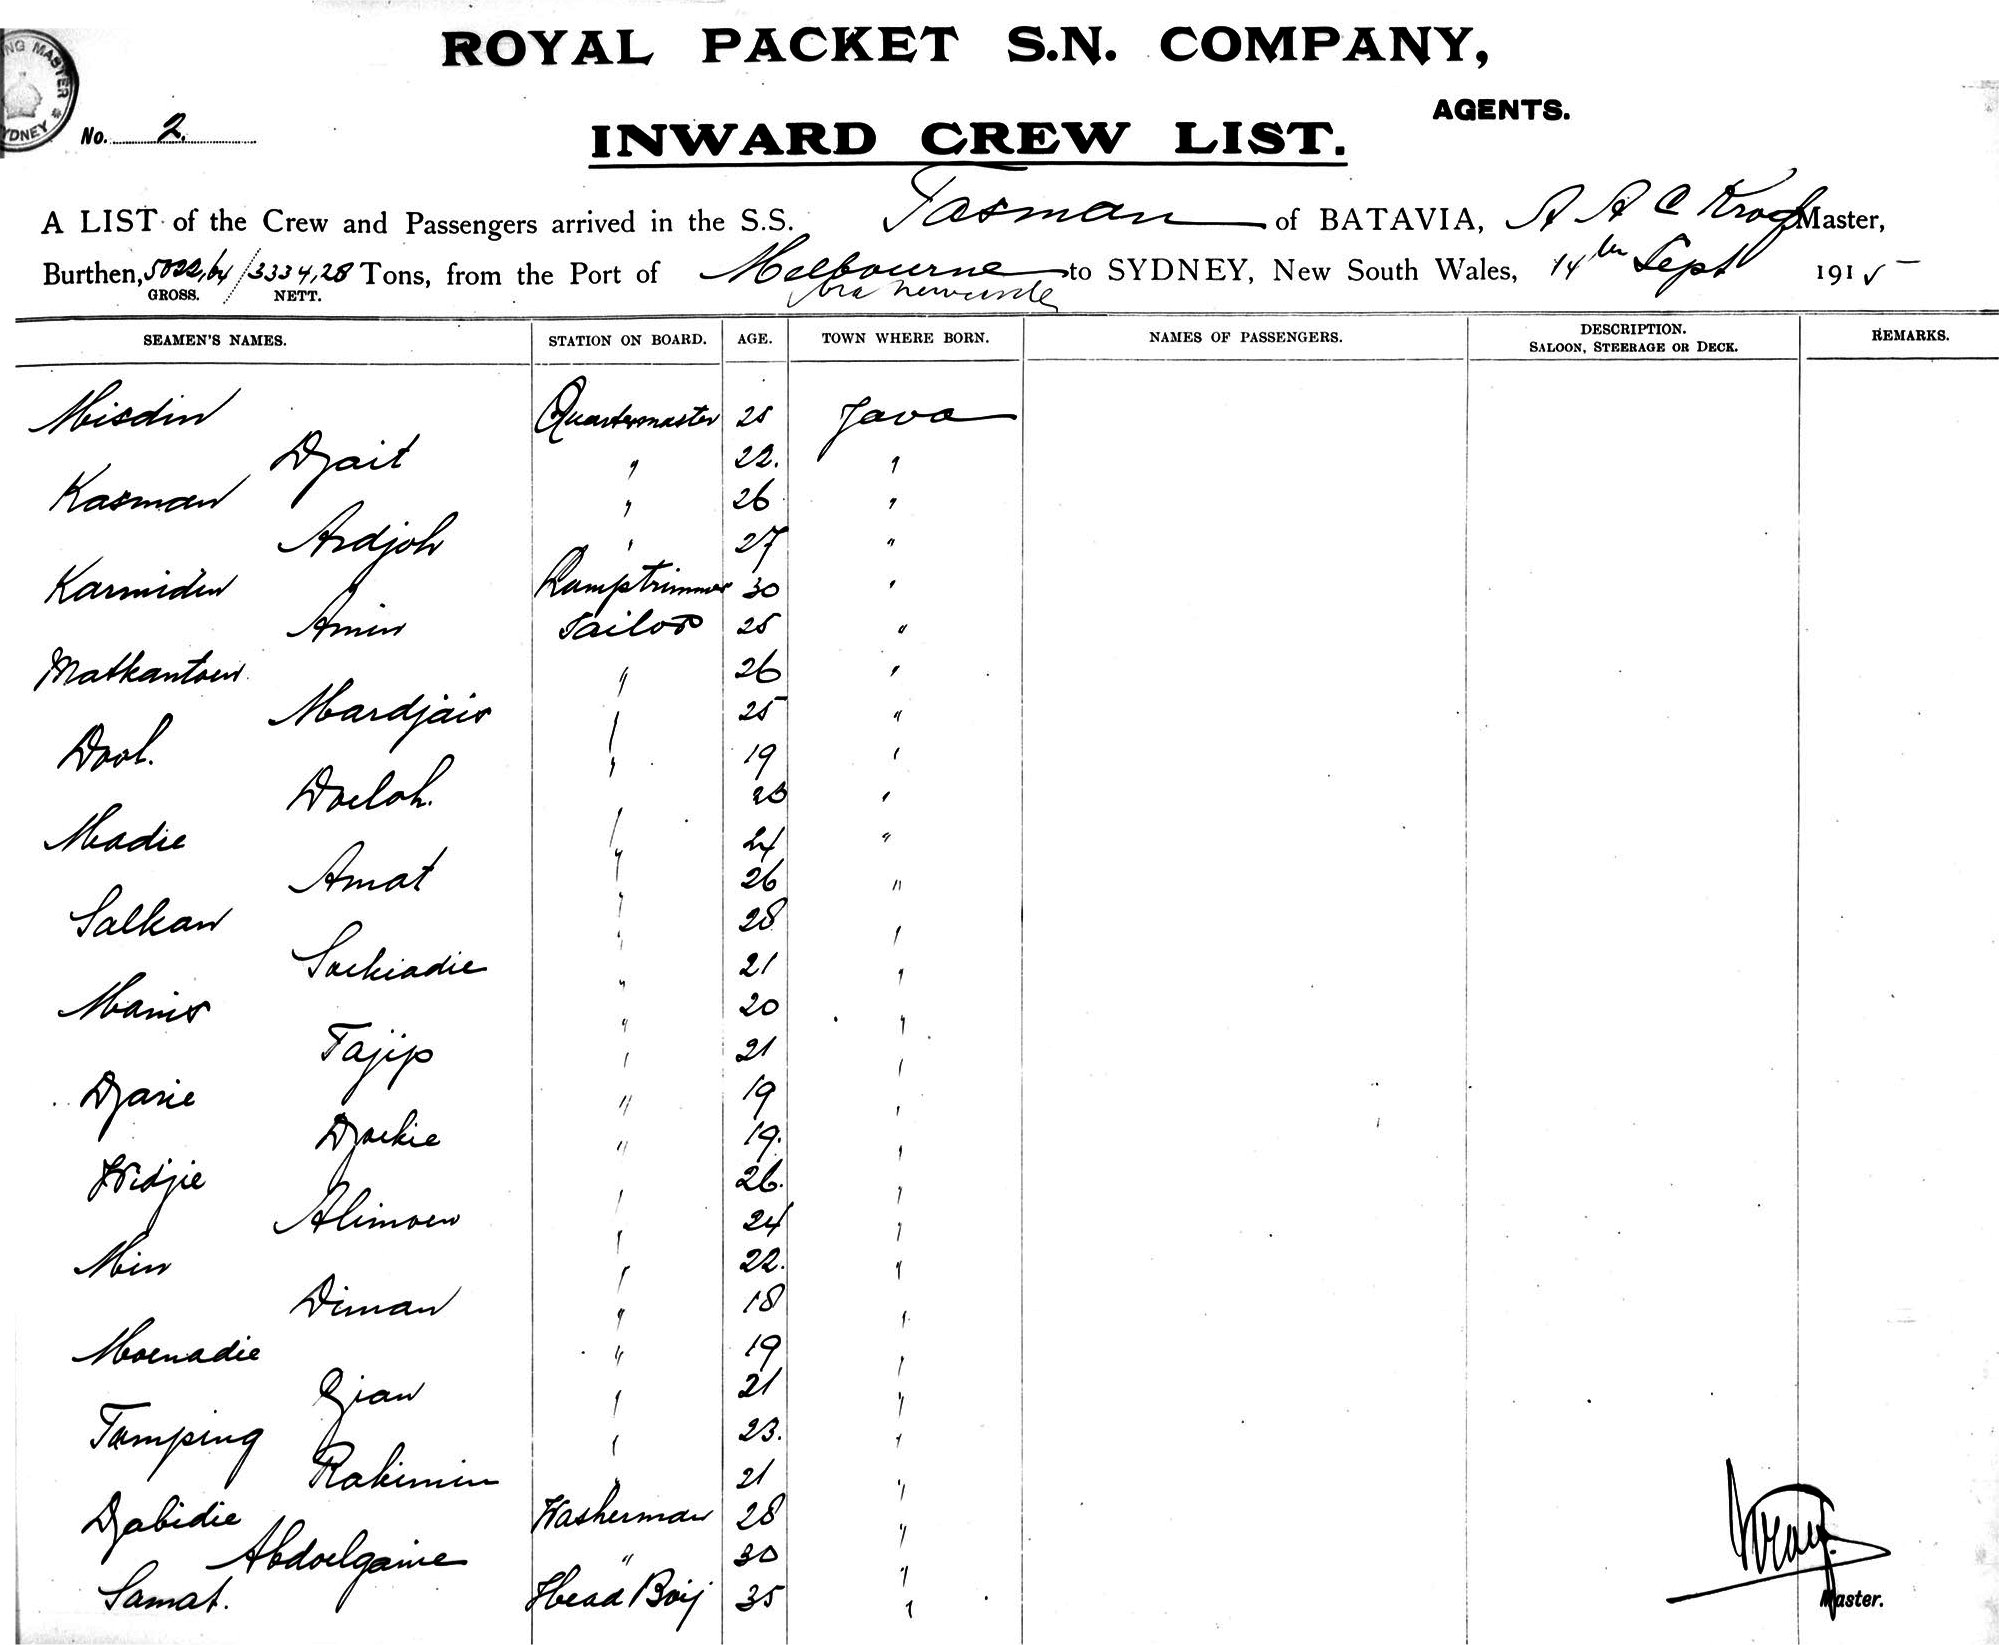 ROYAL PACKET S.N. COMPANY,
AGENTS.
NG MASTER
YDNEY
No. 2.
INWARD CREW LIST.
A LIST of the Crew and Passengers arrived in the S.S. Tasman of BATAVIA, A A C Master,
Burthen, 5022,64 / 3334,28 Tons, from the Port of Melbourne to SYDNEY, New South Wales, 14th Sept 1915
GROSS. NETT. via Newcastle
SEAMEN'S NAMES. STATION ON BOARD. AGE. TOWN WHERE BORN. NAMES OF PASSENGERS. DESCRIPTION. SALOON, STEERAGE OR DECK. REMARKS.
Misdin Quartermaster 25 Java
Djait " 22. "
Kasman " 26 "
Ardjoh " 27 "
Karmidin Lamptrimmer 30 "
Amin Sailor 25 "
Matkantoen " 26 "
Mardjais " 25 "
Dool. " 19 "
Doeloh. " "
Madie " 24 "
Amat " 26 "
Salkan " 28 "
Soekiadie " 21 "
Manis " 20 "
Tajip " 21 "
Djarie " 19 "
Djoekie " 19. "
Widjie " 26. "
Alimoen " 24 "
Min " 22. "
Diman " 18 "
Moenadie " 19 "
" 21 "
Tamping " 23. "
Rakimin " 21 "
Djabidie Washerman 28 "
Abdoelganie " 30 "
Samat. Head Boij 35 "
Master.